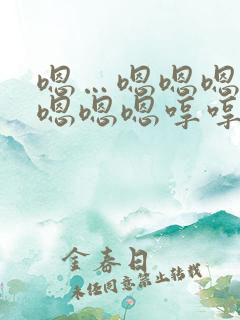 嗯…嗯嗯嗯
嗯嗯嗯哼哼
金春日
未经同意禁止转载